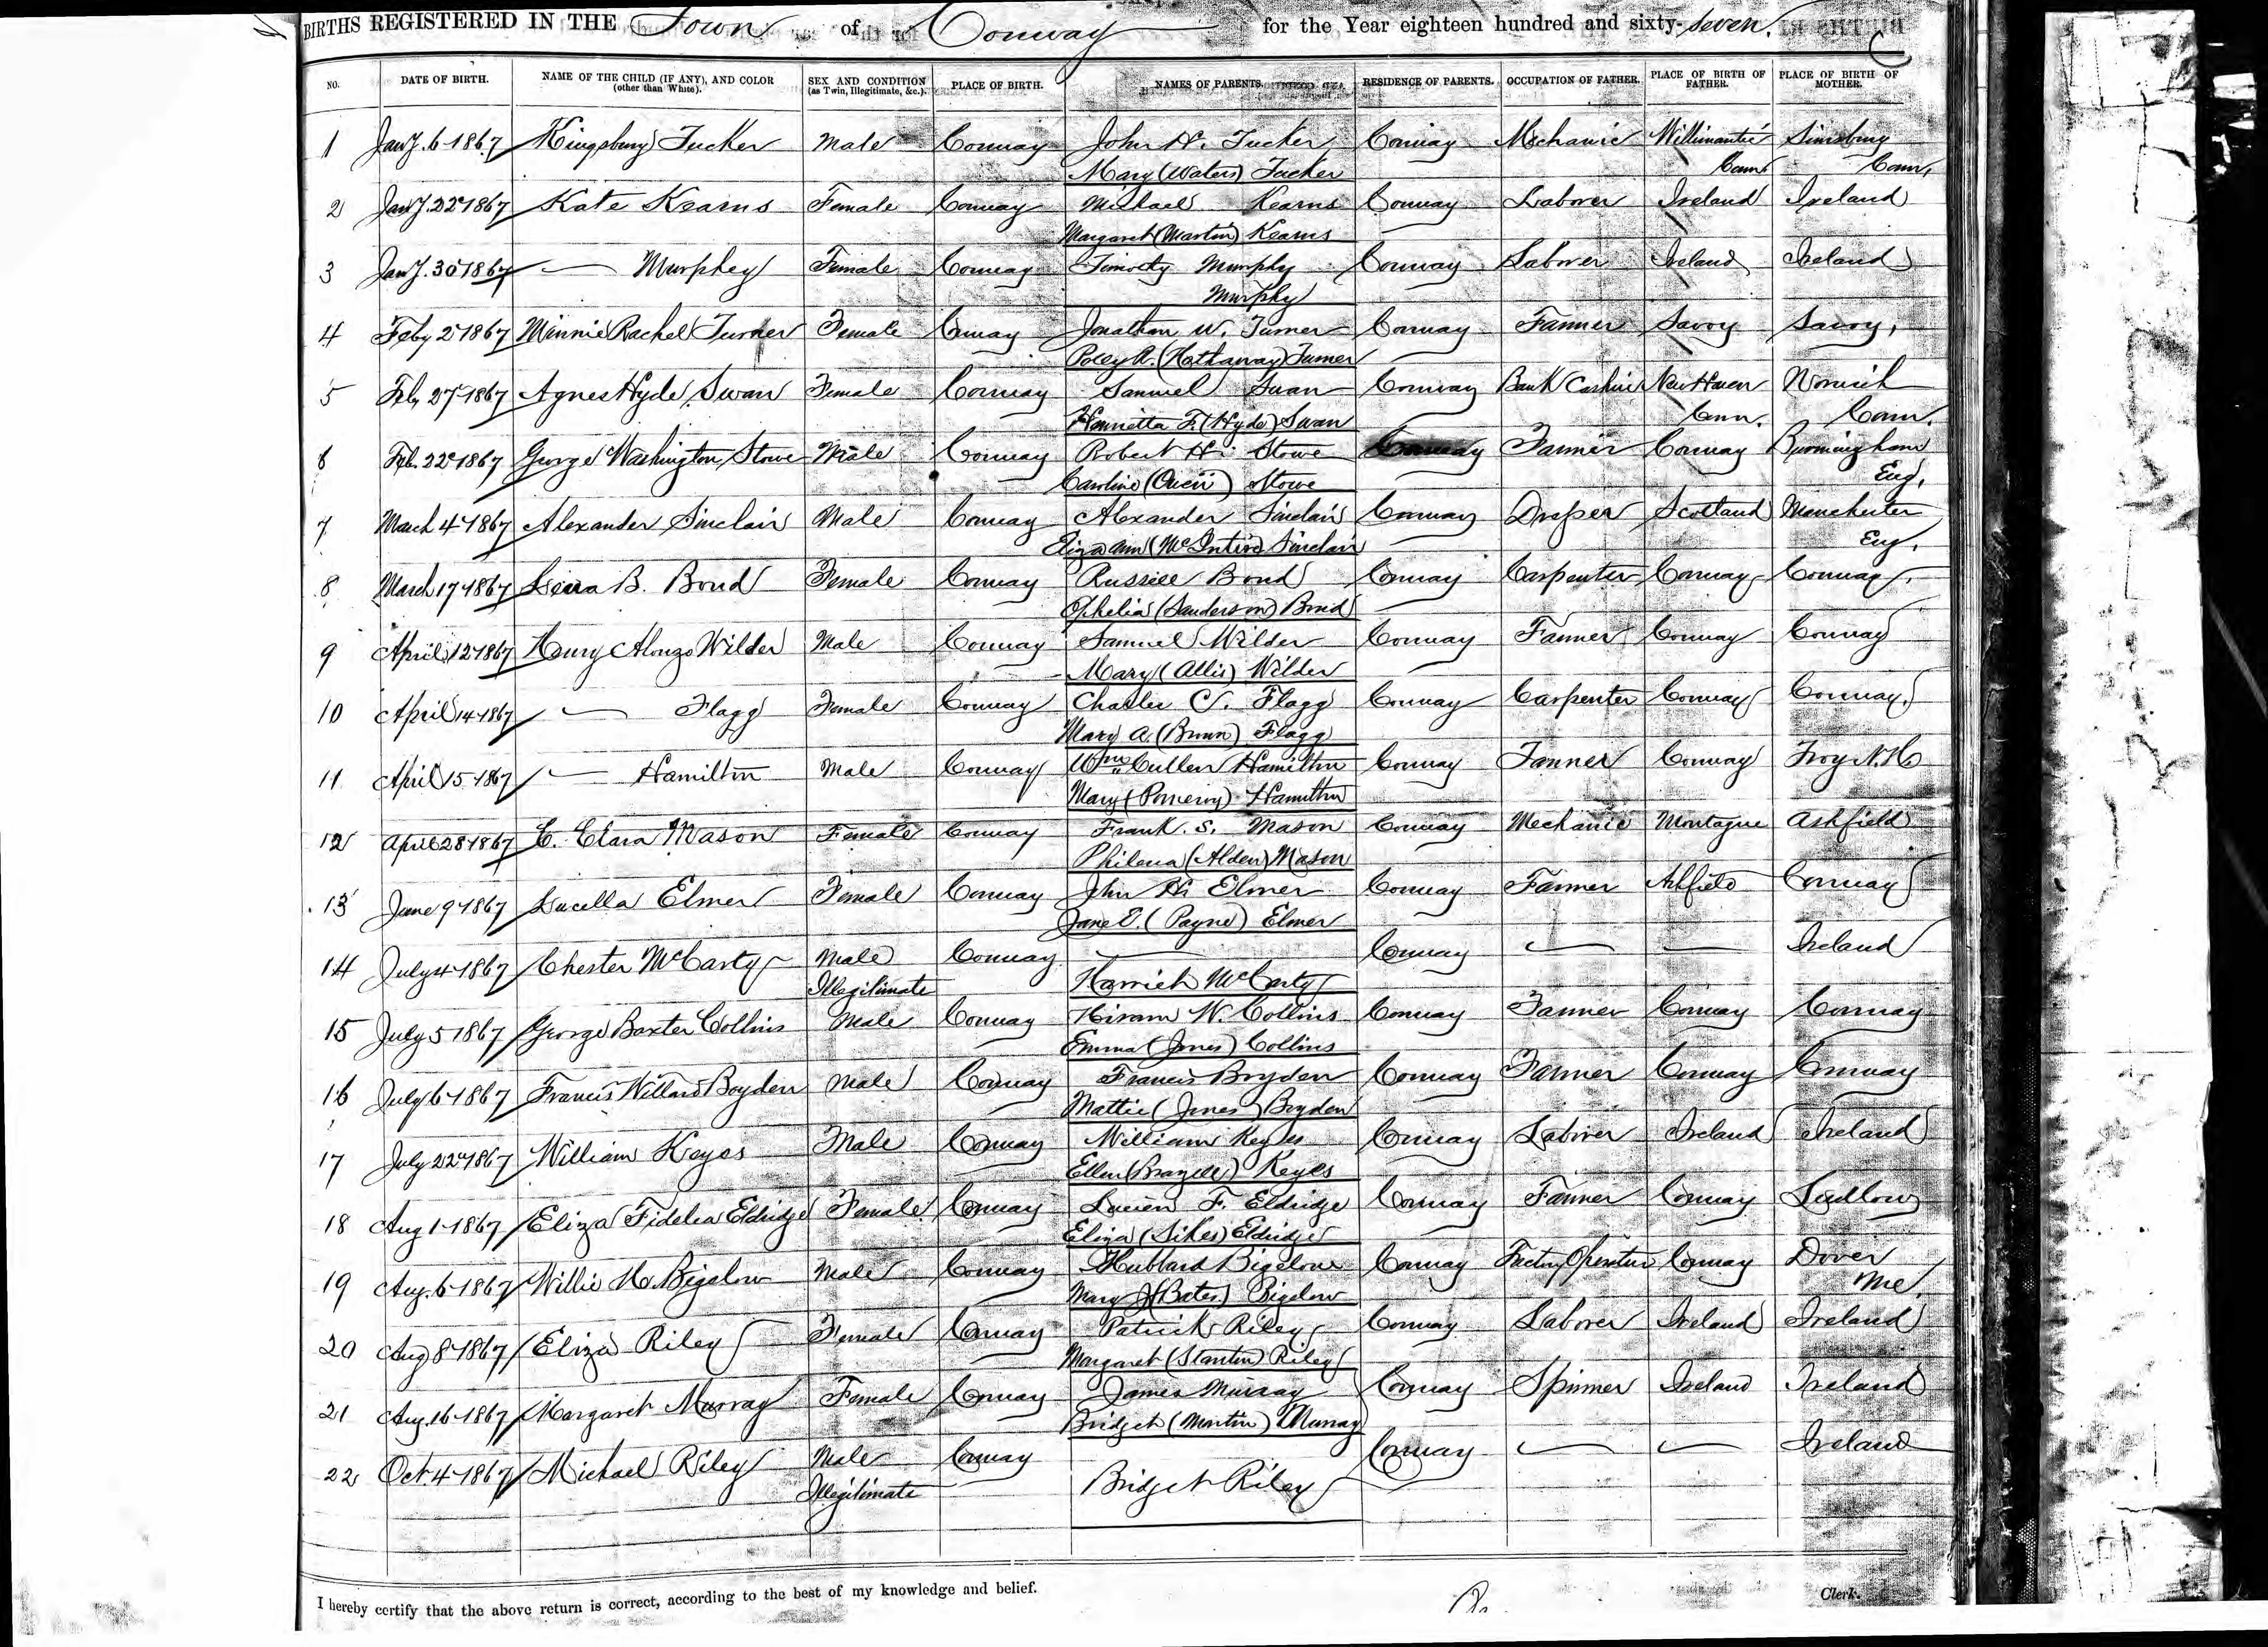 BIRTHS REGISTERED IN THE Town of Conway for the Year eighteen hundred and sixty-seven.
NO. DATE OF BIRTH. NAME OF THE CHILD (IF ANY), AND COLOR (other than White). SEX AND CONDITION (as Twin, Illegitimate, &c.). PLACE OF BIRTH. NAMES OF PARENTS. RESIDENCE OF PARENTS. OCCUPATION OF FATHER. PLACE OF BIRTH OF FATHER. PLACE OF BIRTH OF MOTHER.
1 Jany. 6 1867 Kingsbury Tucker Male Conway John H. Tucker Conway Mechanic Willimantic Simsbury
Mary (Waters) Tucker Conn. Conn.
2 Jany. 22 1867 Kate Kearns Female Conway Michael Kearns Conway Laborer Ireland Ireland
Margaret (Martin) Kearns
3 Jany. 30 1867 — Murphey Female Conway Timothy Murphy Conway Laborer Ireland Ireland
Murphy
4 Feby 2 1867 Minnie Rachel Turner Female Conway Jonathan W. Turner Conway Farmer Savoy Savoy
(Hathaway) Turner
5 Feby 27 1867 Agnes Hyde Swan Female Conway Samuel Swan Conway Bank Cashier New Haven Norwich
Henrietta F. (Hyde) Swan Conn. Conn.
6 Feb. 22 1867 George Washington Stowe Male Conway Robert H. Stowe Conway Farmer Conway Burmingham
Caroline (Owen) Stowe Eng.
7 March 4 1867 Alexander Sinclair Male Conway Alexander Sinclair Conway Draper Scotland Manchester
Eliza Ann (McIntire) Sinclair Eng.
8 March 17 1867 B. Bond Female Conway Russell Bond Conway Carpenter Conway Conway
Ophelia (Sanderson) Bond
9 April 12 1867 Henry Alonzo Wilder Male Conway Samuel Wilder Conway Farmer Conway Conway
Mary (Allis) Wilder
10 April 14 1867 — Flagg Female Conway Charles C. Flagg Conway Carpenter Conway Conway
Mary A. (Bunn) Flagg
11 April 15 1867 — Hamilton Male Conway Wm. Cullen Hamilton Conway Farmer Conway Troy N.H.
Mary (Pomeroy) Hamilton
12 April 28 1867 E. Clara Mason Female Conway Frank S. Mason Conway Mechanic Montague Ashfield
Philena (Alden) Mason
13 June 9 1867 Lucella Elmer Female Conway John H. Elmer Conway Farmer Ashfield Conway
Jane E. (Payne) Elmer
14 July 4 1867 Chester McCarty Male Conway — Conway — — Ireland
Illegitimate Harriet McCarty
15 July 5 1867 George Baxter Collins Male Conway Hiram W. Collins Conway Farmer Conway Conway
Emma (Jones) Collins
16 July 6 1867 Francis Willard Boyden Male Conway Francis Boyden Conway Farmer Conway Conway
Mattie (Jones) Boyden
17 July 22 1867 William Keyes Male Conway William Keyes Conway Laborer Ireland Ireland
Ellen (Brazell) Keyes
18 Aug 1 1867 Eliza Fidelia Eldridge Female Conway Lucien F. Eldridge Conway Farmer Conway Ludlow
Eliza (Sikes) Eldridge
19 Aug. 6 1867 Willie H. Bigelow Male Conway Hubbard Bigelow Conway Factory Operative Conway Dover
Mary J (Bates) Bigelow Me.
20 Aug 8 1867 Eliza Riley Female Conway Patrick Riley Conway Laborer Ireland Ireland
Margaret (Stanton) Riley
21 Aug. 16 1867 Margaret Murray Female Conway James Murray Conway Spinner Ireland Ireland
Bridget (Martin) Murray
22 Oct. 4 1867 Michael Riley Male Conway Conway — — Ireland
Illegitimate Bridget Riley
I hereby certify that the above return is correct, according to the best of my knowledge and belief.
Clerk.